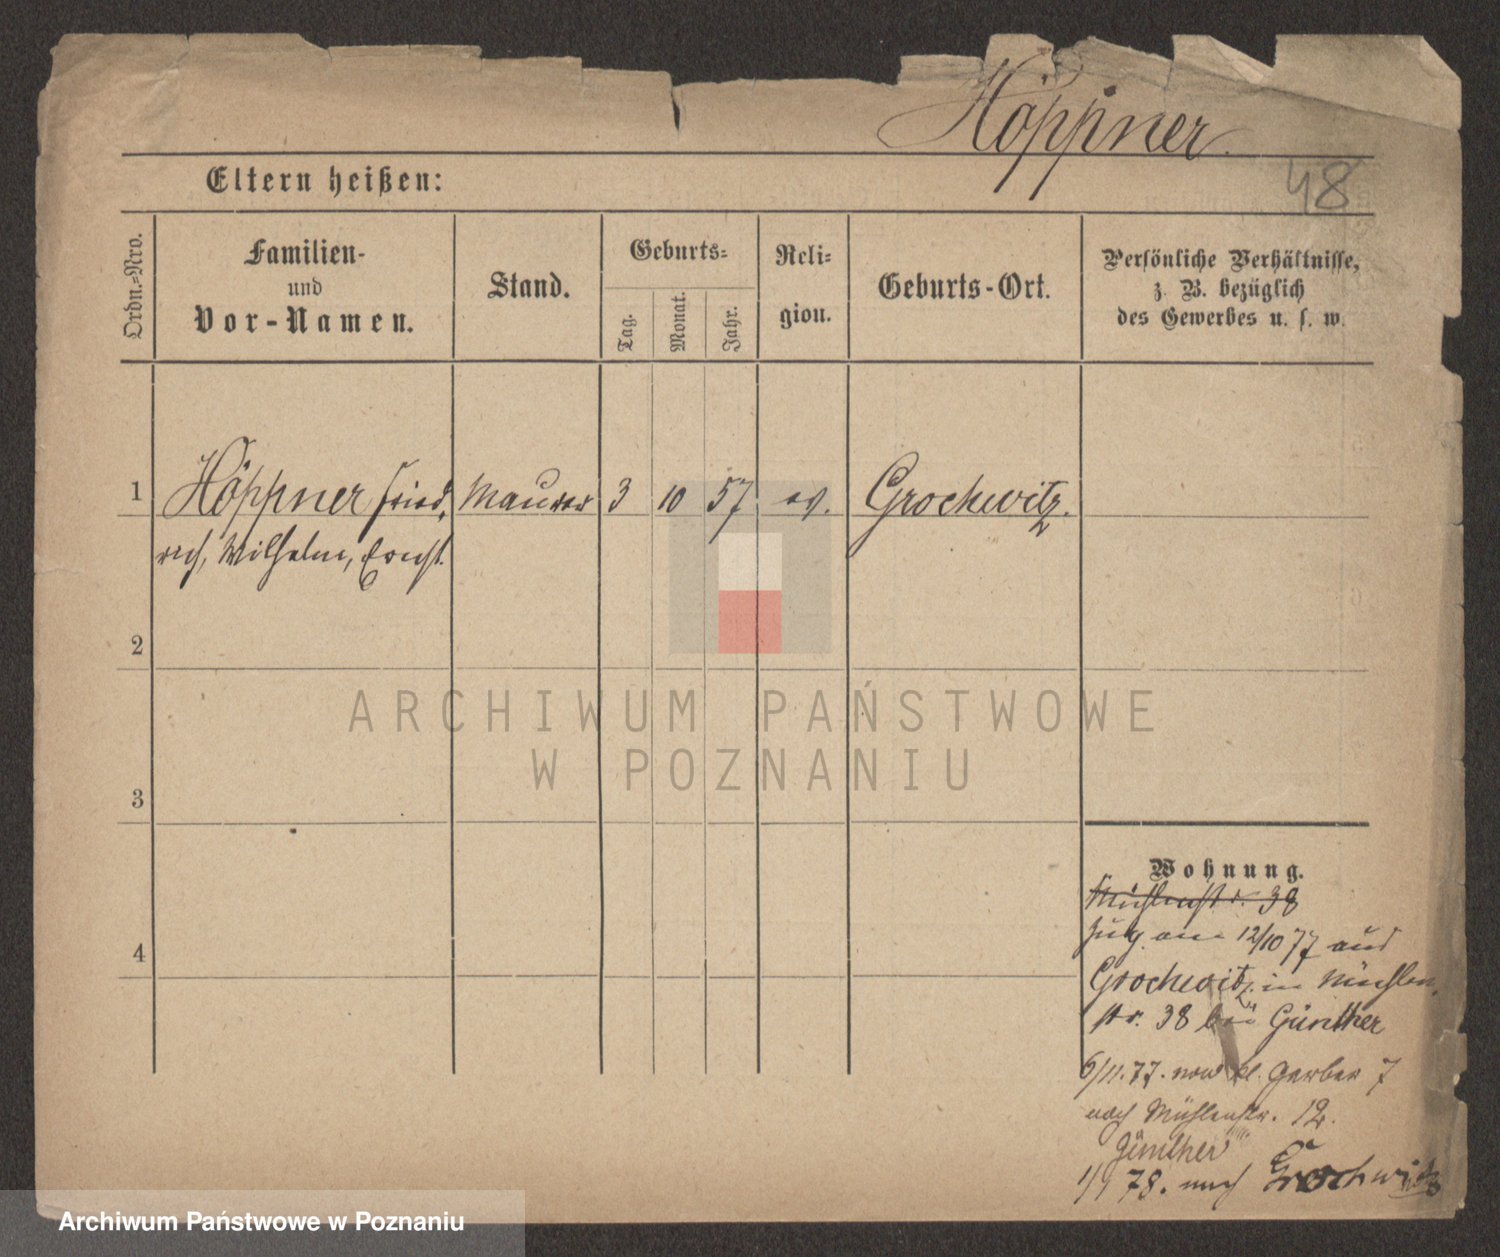 Höppner.
48
Eltern heißen:
Ordn.-Nro.
Familien-
und
Vor-Namen.
Stand.
Geburts-
Tag.
Monat.
Jahr.
Reli-
gion.
Geburts-Ort.
Persönliche Verhältnisse,
z. B. bezüglich
des Gewerbes u. s. w.
1
Höppner Fried-
rich, Wilhelm, Ernst.
Maurer
3
10
57
ev.
Grochwitz.
2
3
4
Wohnung.
Mühlenstr. 38
Zug. am 12/10 77 aus
Grochwitz in Mühlen-
str. 38 bei Günther
6/11.77. von kl. Gerber 7
nach Mühlenstr. 12.
Günther
78. nach Grochwitz
ARCHIWUM PAŃSTWOWE
W POZNANIU
Archiwum Państwowe w Poznaniu